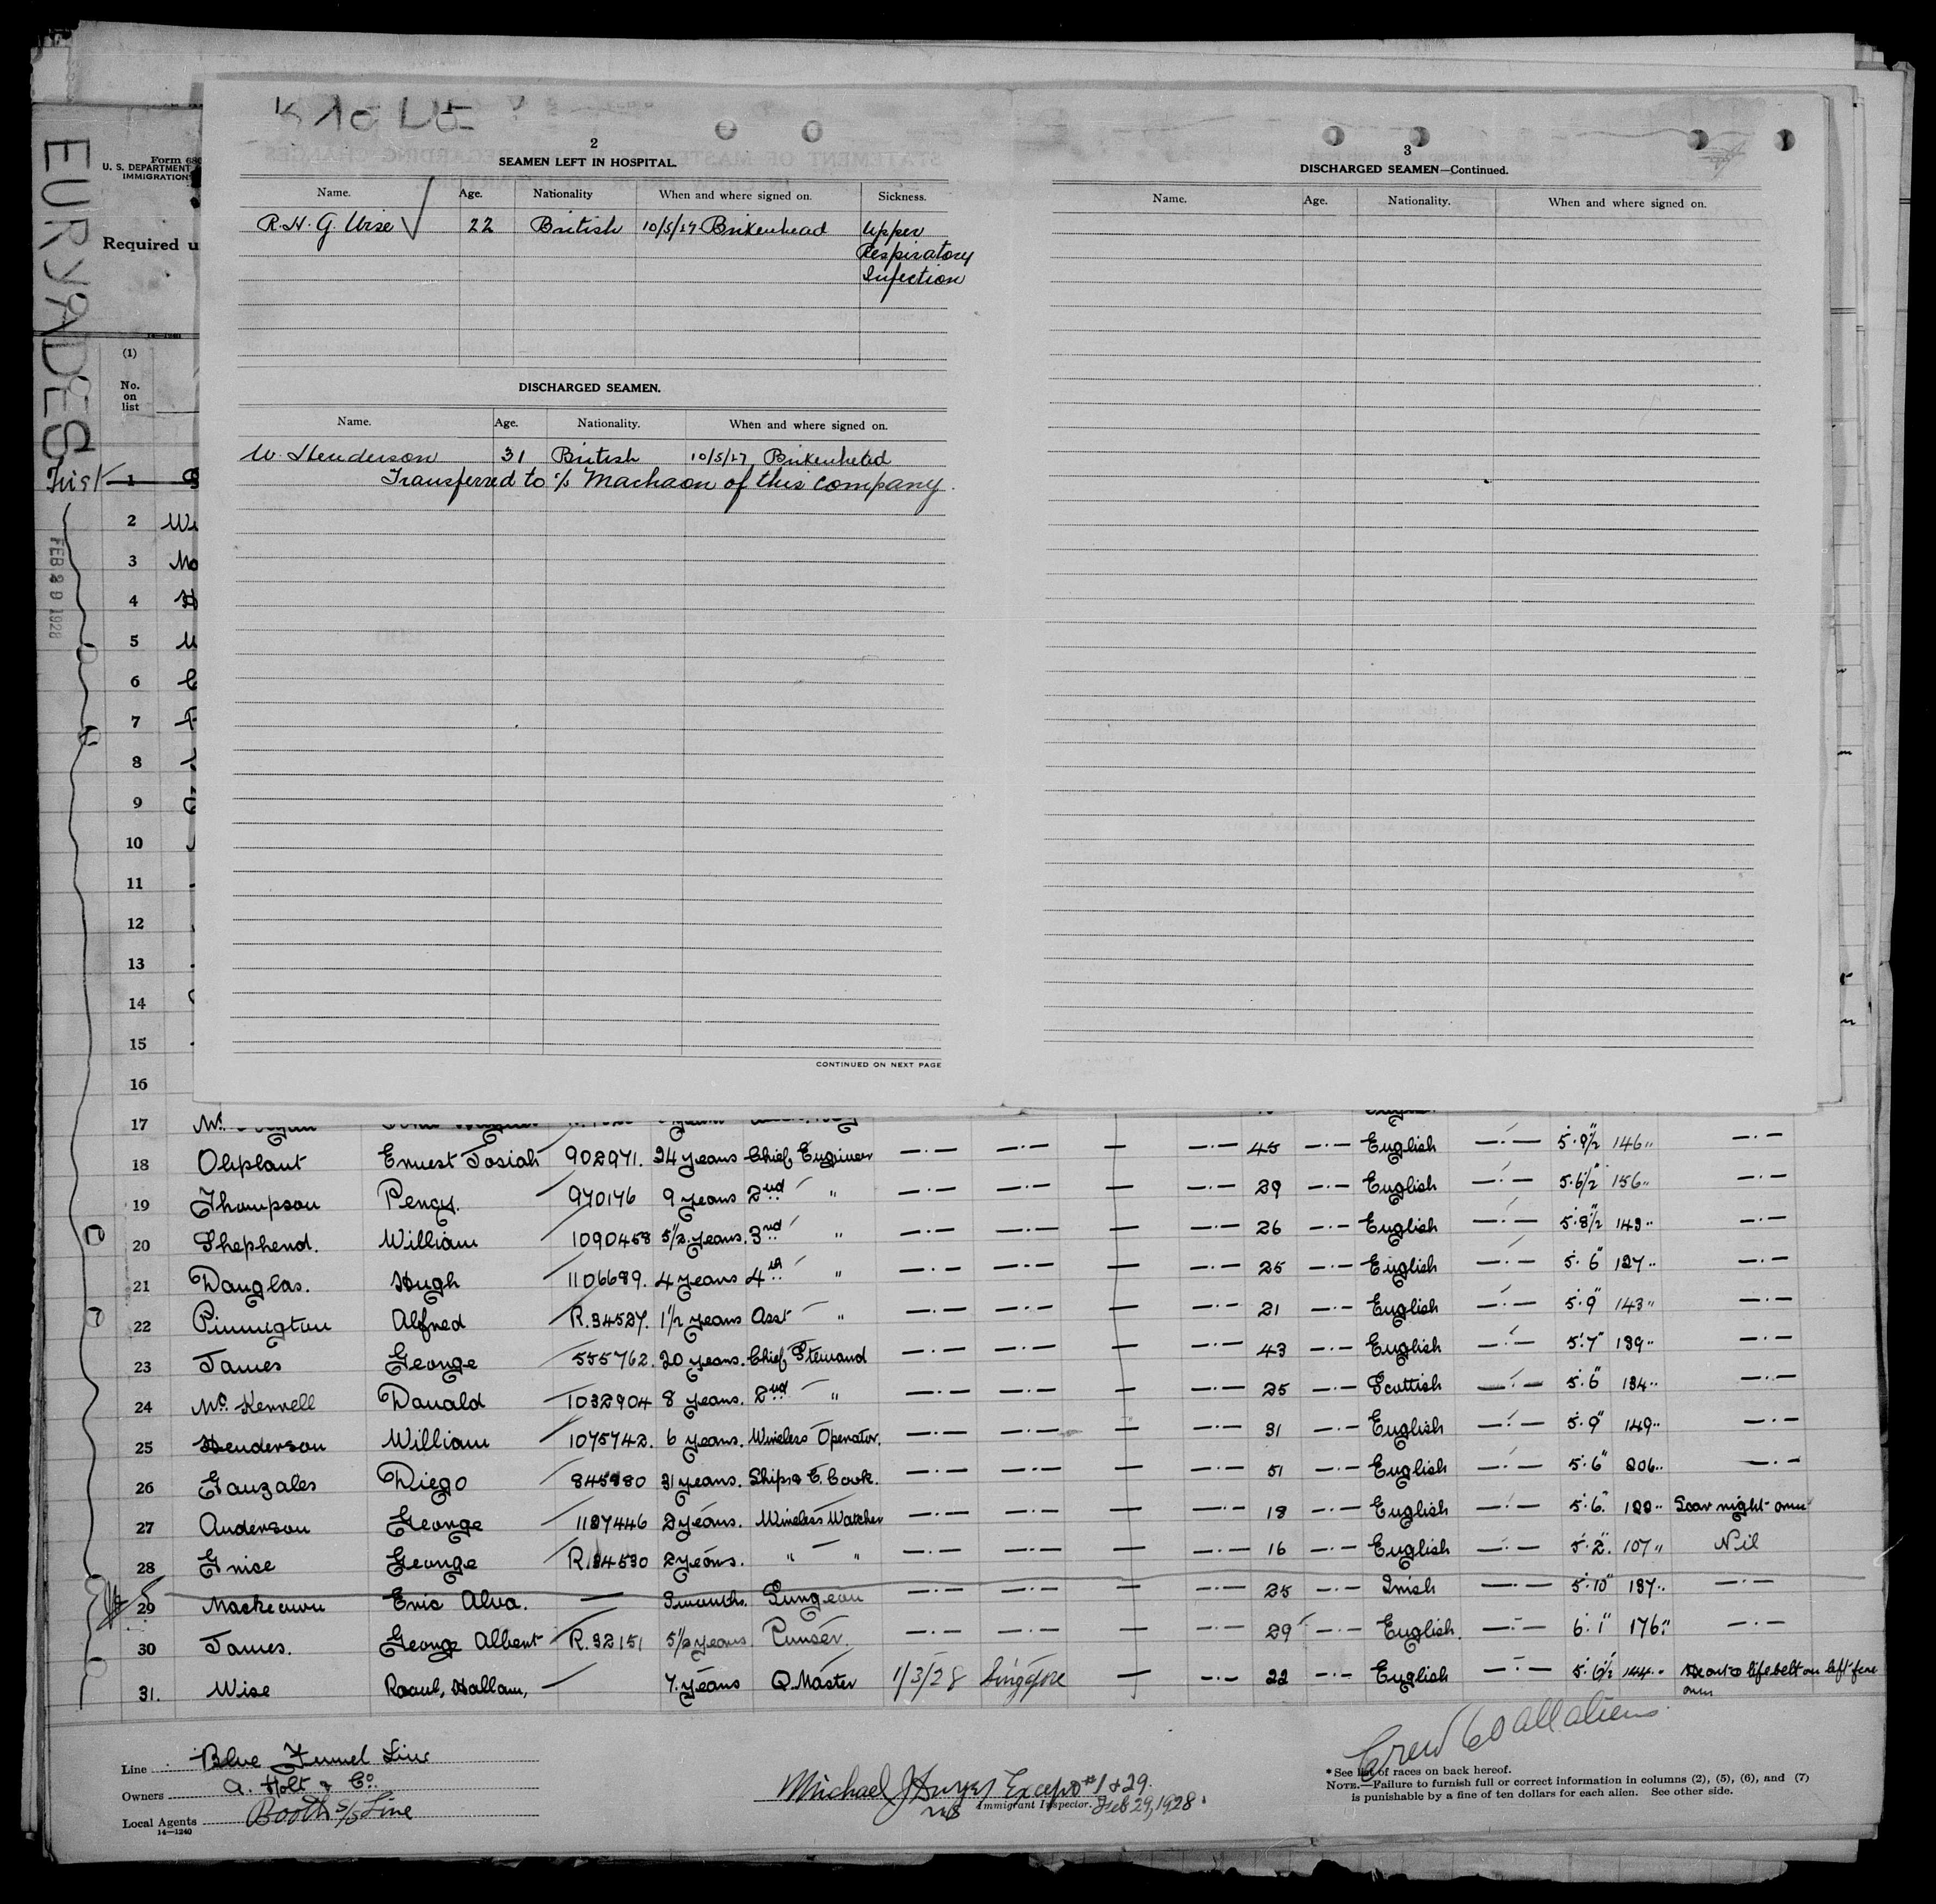 EURYADES
FEB 29 1928
Form 680
U. S. DEPARTMENT
IMMIGRATION
Required u
(1)
No.
on
list
2
SEAMEN LEFT IN HOSPITAL.
Name. Age. Nationality When and where signed on. Sickness.
R. H. G. Wise 22 British 10/5/27 Birkenhead Upper
Respiratory
Infection
DISCHARGED SEAMEN.
Name. Age. Nationality. When and where signed on.
W. Henderson 31 British 10/5/27 Birkenhead
Transferred to s/s Machaon of this company.
CONTINUED ON NEXT PAGE
3
DISCHARGED SEAMEN—Continued.
Name. Age. Nationality. When and where signed on.
1
2
3
4
5
6
7
8
9
10
11
12
13
14
15
16
17
18 Oliphant Ernest Josiah 902971. 24 years Chief Engineer —·— —·— — —·— 45 —·— English —·— 5·9½" 146" —·—
19 Thompson Percy. 970176 9 years 2nd " —·— —·— — —·— 29 —·— English —·— 5·6½" 156" —·—
20 Shepherd. William 1090458 5½ years. 3rd " —·— —·— — —·— 26 —·— English —·— 5·8½" 149" —·—
21 Douglas. Hugh 1106689. 4 years 4th " —·— —·— — —·— 25 —·— English —·— 5·6" 127" —·—
22 Pinnington Alfred R.34527. 1½ years Asst " —·— —·— — —·— 21 —·— English —·— 5·9" 143" —·—
23 James George 555762. 20 years. Chief Steward —·— —·— — —·— 43 —·— English —·— 5·7" 139" —·—
24 Donald 1032904 8 years. 2nd " —·— —·— — —·— 25 —·— Scottish —·— 5·6" 134" —·—
25 Henderson William 1075742. 6 years. Wireless Operator. —·— —·— — —·— 31 —·— English —·— 5·9" 149" —·—
26 Gonzales Diego 31 years. Ships Cook. —·— —·— — —·— 51 —·— English —·— 5·6" 206" —·—
27 Anderson George 1127446 2 years. Wireless Watcher —·— —·— — —·— 18 —·— English —·— 5·6" Scar right arm
28 Grice George R.34530 2 years. " " —·— —·— — —·— 16 —·— English —·— 5·2" 107" Nil
29 Mackeown Eric Alva. — months. Surgeon —·— —·— — —·— 25 —·— Irish —·— 5·10" 137" —·—
30 James. George Albert R.32151 5½ years Purser. —·— —·— — —·— 29 —·— English. —·— 6·1" 176" —·—
31. Wise Raoul, Hallam, 7 years Q. Master 1/3/28 Singapore — —·— 22 —·— English —·— 5·6½ 144" Heart & lifebelt on left fore
arm
Crew 60 all aliens
Line Blue Funnel Line
Owners A. Holt & Co.
Local Agents Booth S/S Line
14—1240
Michael J Except #1 & 29.
Immigrant Inspector. Feb 29, 1928.
* See list of races on back hereof.
NOTE.—Failure to furnish full or correct information in columns (2), (5), (6), and (7)
is punishable by a fine of ten dollars for each alien. See other side.